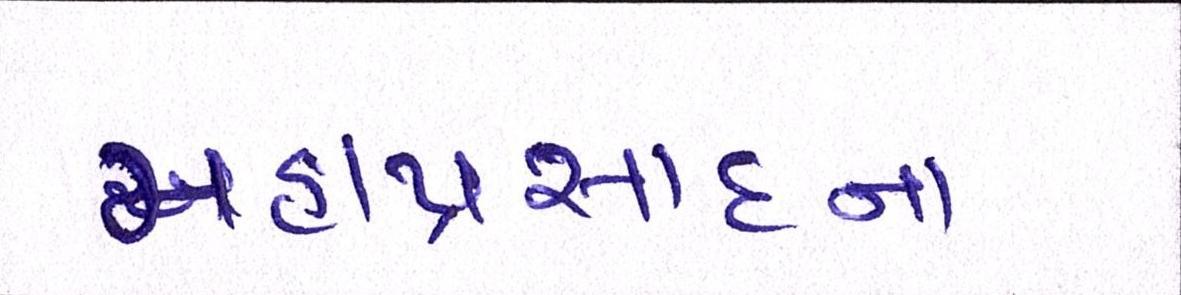 મહાપ્રસાદના